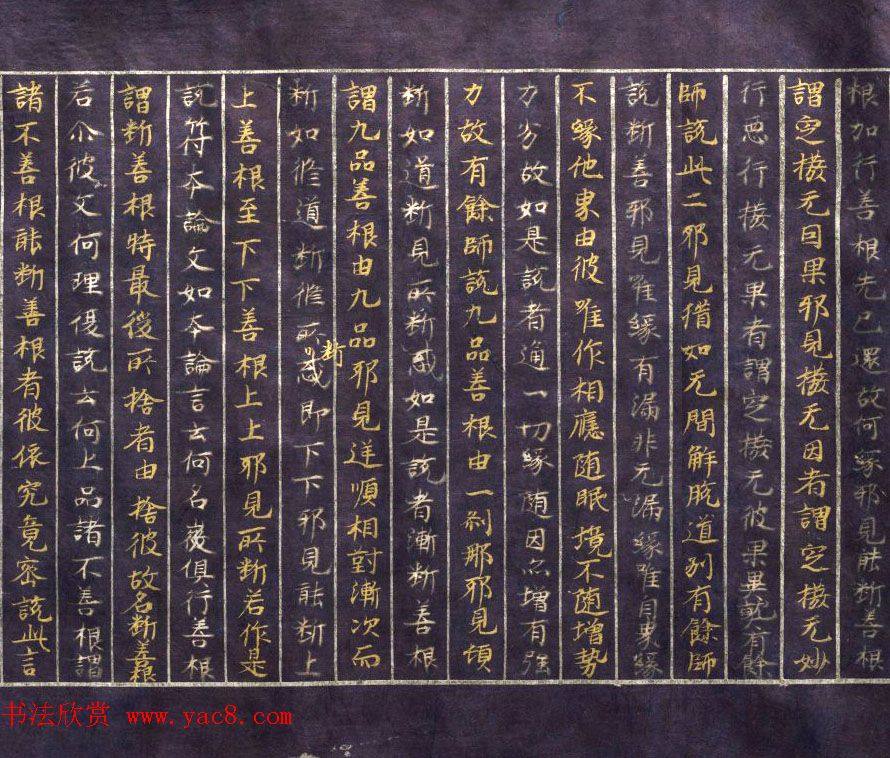 根加行善根先已還故何緣邪見能斷善根
謂定撥无因果邪見撥无因者謂定撥无妙
行惡行撥无果者謂定撥无彼果異熟有餘
師說此二邪見猶如无間解脫道別有餘師
說斷善邪見唯緣有漏非无漏緣唯自界緣
不緣他界由彼唯作相應随眠境不随增勢
力劣故如是說者通一切緣随因亦增有強
力故有餘師說九品善根由一剎那邪見頓
斷如道斷見所斷惑如是說者漸斷善根
謂九品善根由九品邪見逆順相對漸次而
斷如俢道斷俢所斷惑即下下邪見能斷上
上善根至下下善根上上邪見所斷若作是
說符本論文如本論言云何名微俱行善根
謂斷善根特最後所捨者由捨彼故名斷善根
若尒彼文何理復說云何上品諸不善根謂
諸不善根能斷善根者彼依究竟密說此言
书法欣赏 www.yac8.com